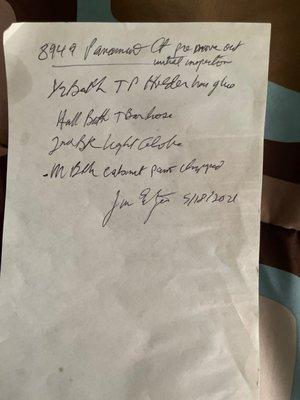 8949 Paramount Ct pre move out
initial inspection
1/2 Bath TP Holder has glue
Hall Bath T Bar loose
2nd BR Light Globe
- M Bth cabinet paint chipped
5/18/2021